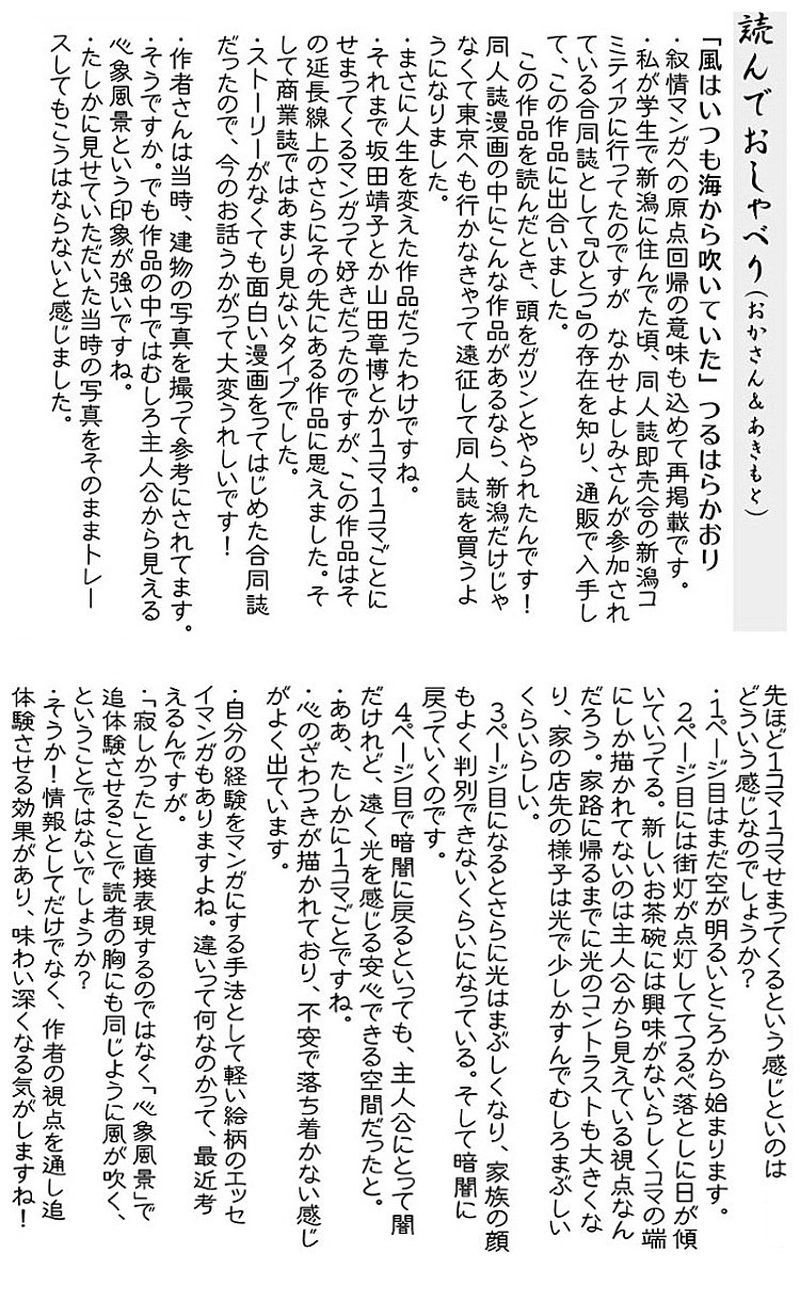 読んでおしゃべり（おかさん＆あきもと）
「風はいつも海から吹いていた」つるはらかおり
・叙情マンガへの原点回帰の意味も込めて再掲載です。
・私が学生で新潟に住んでた頃、同人誌即売会の新潟コ
ミティアに行ってたのですが　なかせよしみさんが参加され
ている合同誌として『ひとつ』の存在を知り、通販で入手し
て、この作品に出合いました。
この作品を読んだとき、頭をガツンとやられたんです！
同人誌漫画の中にこんな作品があるなら、新潟だけじゃ
なくて東京へも行かなきゃって遠征して同人誌を買うよ
うになりました。
・まさに人生を変えた作品だったわけですね。
・それまで坂田靖子とか山田章博とか１コマ１コマごとに
せまってくるマンガって好きだったのですが、この作品はそ
の延長線上のさらにその先にある作品に思えました。そ
して商業誌ではあまり見ないタイプでした。
・ストーリーがなくても面白い漫画をってはじめた合同誌
だったので、今のお話うかがって大変うれしいです！
・作者さんは当時、建物の写真を撮って参考にされてます。
・そうですか。でも作品の中ではむしろ主人公から見える
心象風景という印象が強いですね。
・たしかに見せていただいた当時の写真をそのままトレー
スしてもこうはならないと感じました。
先ほど１コマ１コマせまってくるという感じといのは
どういう感じなのでしょうか？
・１ページ目はまだ空が明るいところから始まります。
２ページ目には街灯が点灯しててつるべ落としに日が傾
いていってる。新しいお茶碗には興味がないらしくコマの端
にしか描かれてないのは主人公から見えている視点なん
だろう。家路に帰るまでに光のコントラストも大きくな
り、家の店先の様子は光で少しかすんでむしろまぶしい
くらいらしい。
３ページ目になるとさらに光はまぶしくなり、家族の顔
もよく判別できないくらいになっている。そして暗闇に
戻っていくのです。
４ページ目で暗闇に戻るといっても、主人公にとって闇
だけれど、遠く光を感じる安心できる空間だったと。
・ああ、たしかに１コマごとですね。
・心のざわつきが描かれており、不安で落ち着かない感じ
がよく出ています。
・自分の経験をマンガにする手法として軽い絵柄のエッセ
イマンガもありますよね。違いって何なのかって、最近考
えるんですが。
・「寂しかった」と直接表現するのではなく「心象風景」で
追体験させることで読者の胸にも同じように風が吹く、
ということではないでしょうか？
・そうか！情報としてだけでなく、作者の視点を通し追
体験させる効果があり、味わい深くなる気がしますね！